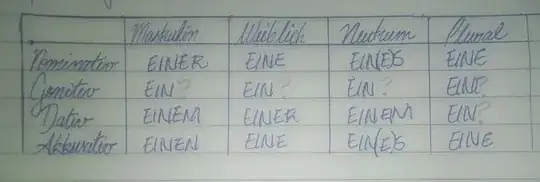 Maskulin Weiblich Neutrum Plural
Nominativ EINER EINE EIN(E)S EINE
Genitiv EIN? EIN? EIN? EIN?
Dativ EINEM EINER EINEM EIN?
Akkusativ EINEN EINE EIN(E)S EINE